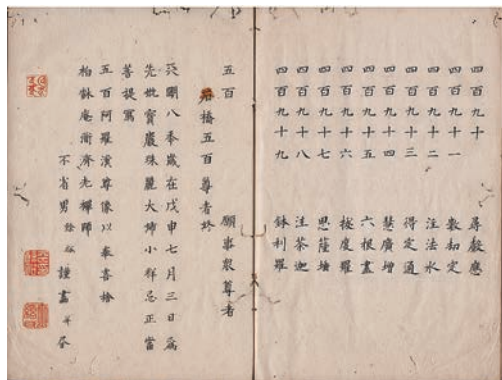 四百九十 尋聲應
四百九十一 數劫定
四百九十二 注法水
四百九十三 得定通
四百九十四 慧廣增
四百九十五 六根盡
四百九十六 度羅
四百九十七 思薩埵
四百九十八 注荼迦
四百九十九 鉢利羅
五百 願事眾尊者
石橋五百尊者終
天明八季歲在戊申七月三日為
先妣寶巖珠麗大姉小祥忌正當
菩提寫
五百阿羅漢尊像以奉喜捨
柏鉢庵濟老禪師
不省男 謹畫并